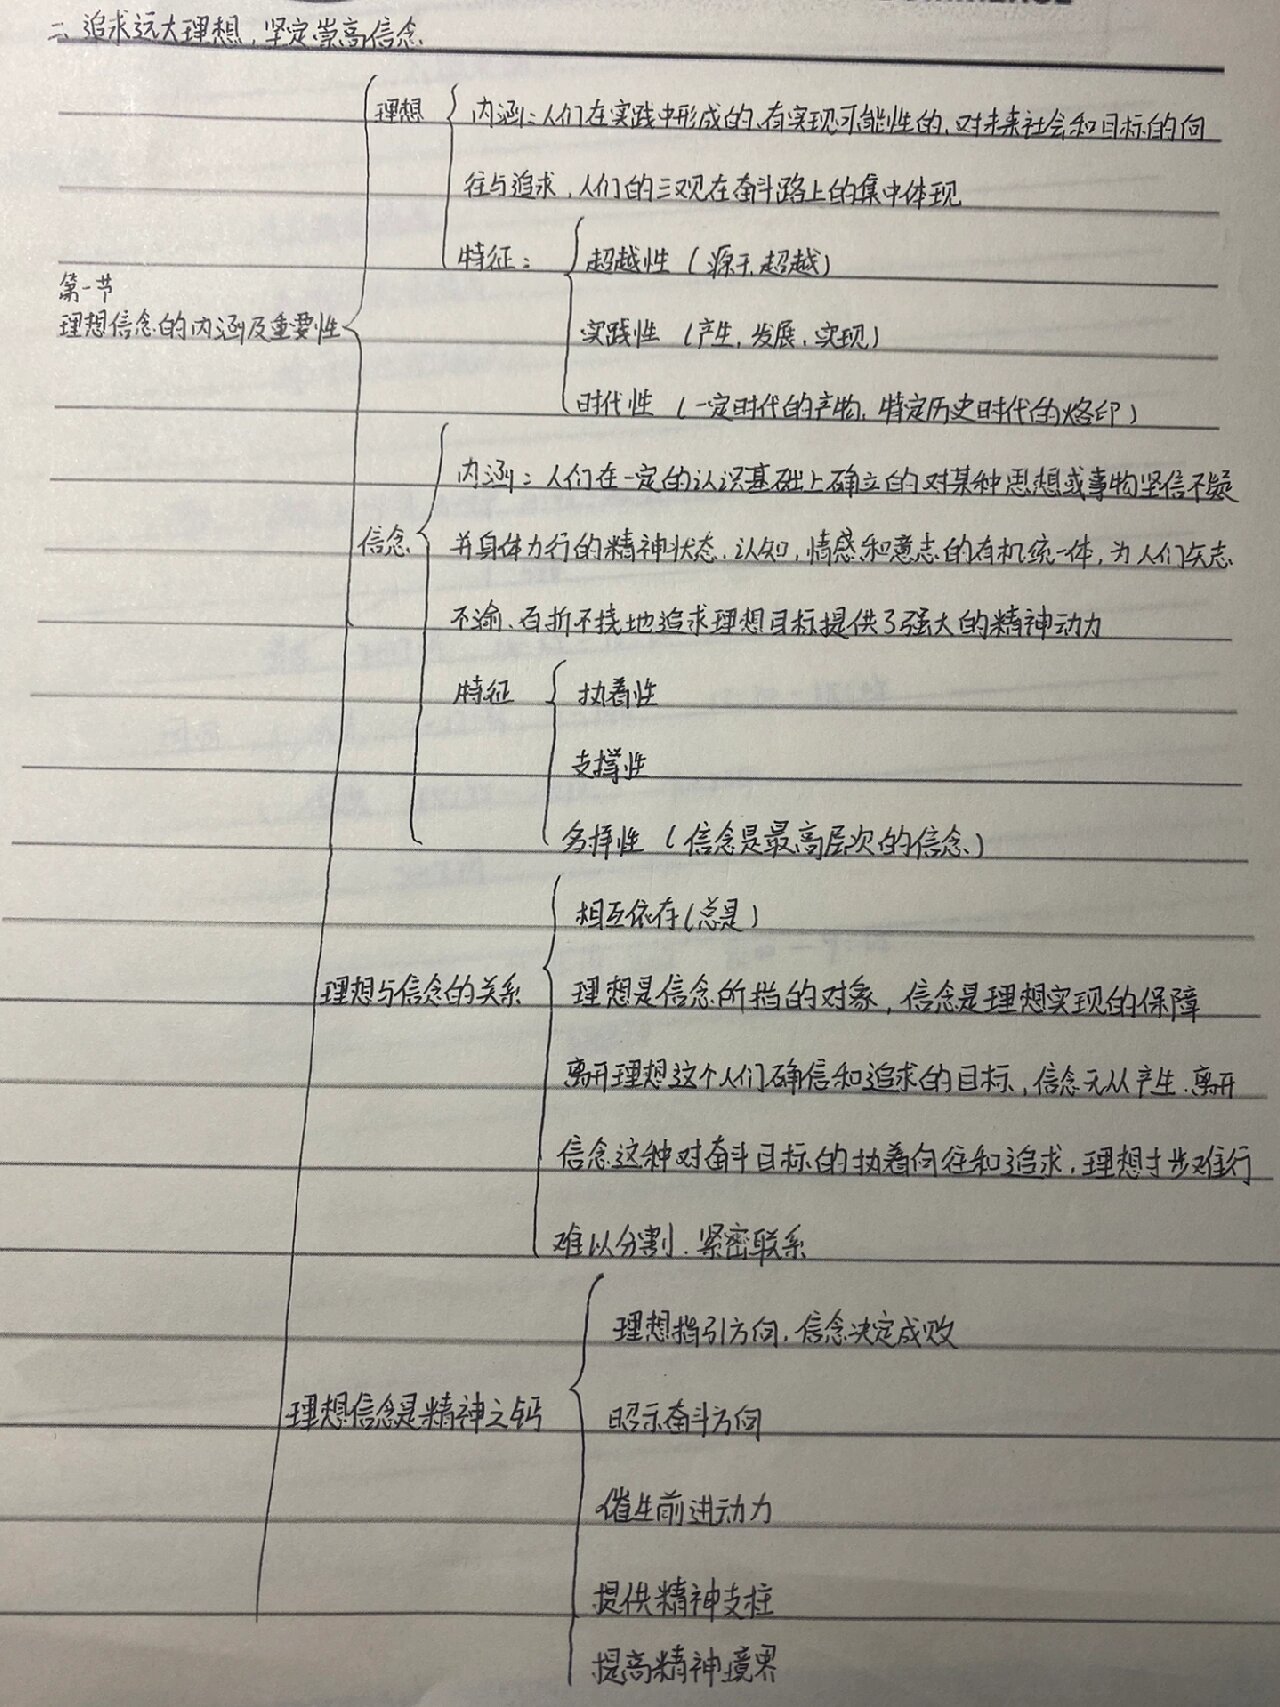 二、追求远大理想,坚定崇高信念
理想
内涵:人们在实践中形成的、有实现可能性的、对未来社会和目标的向
往与追求,人们的三观在奋斗路上的集中体现
特征:
超越性(源于,超越)
第一节
理想信念的内涵及重要性
实践性(产生,发展,实现)
时代性(一定时代的产物,特定历史时代的烙印)
信念
内涵:人们在一定的认识基础上确立的对某种思想或事物坚信不疑
并身体力行的精神状态,认知,情感和意志的有机统一体,为人们矢志
不渝、百折不挠地追求理想目标提供了强大的精神动力
特征
执着性
支撑性
多样性(信念是最高层次的信念)
理想与信念的关系
相互依存(总是)
理想是信念所指的对象,信念是理想实现的保障
离开理想这个人们确信和追求的目标,信念无从产生.离开
信念这种对奋斗目标的执着向往和追求,理想寸步难行
难以分割.紧密联系
理想信念是精神之钙
理想指引方向,信念决定成败
昭示奋斗方向
催生前进动力
提供精神支柱
提高精神境界